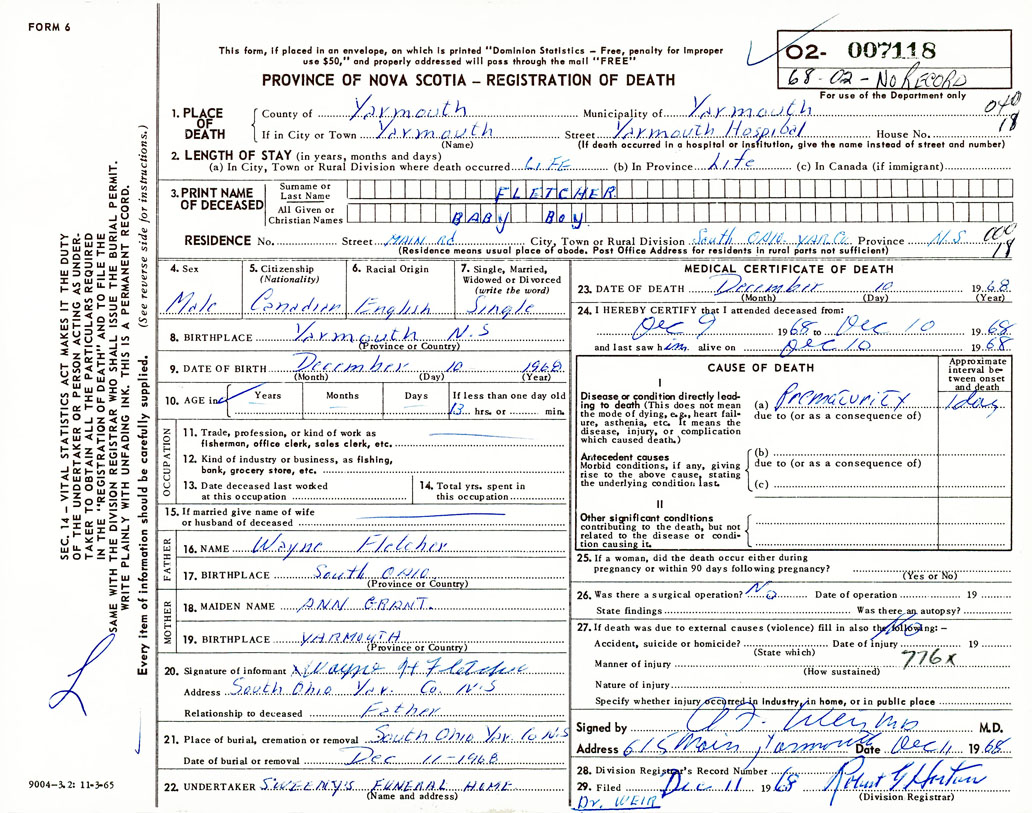 FORM 6
This form, if placed in an envelope, on which is printed "Dominion Statistics – Free, penalty for improper
use $50," and properly addressed will pass through the mail "FREE"
O2- 007118
68-02-NO RECORD
For use of the Department only
PROVINCE OF NOVA SCOTIA – REGISTRATION OF DEATH
040
18
1. PLACE OF DEATH County of Yarmouth Municipality of Yarmouth
If in City or Town Yarmouth Street Yarmouth Hospital House No.
(Name) (If death occurred in a hospital or institution, give the name instead of street and number)
2. LENGTH OF STAY (in years, months and days)
(a) In City, Town or Rural Division where death occurred LIFE (b) In Province Life (c) In Canada (if immigrant)
3. PRINT NAME OF DECEASED Surname or Last Name FLETCHER
All Given or Christian Names BABY BOY
RESIDENCE No. Street MAIN Rd. City, Town or Rural Division South OHIO. YAR.Co. Province N.S 000
18
(Residence means usual place of abode. Post Office Address for residents in rural parts not sufficient)
4. Sex
Male
5. Citizenship
(Nationality)
Canadian
6. Racial Origin
English
7. Single, Married,
Widowed or Divorced
(write the word)
Single
8. BIRTHPLACE Yarmouth N.S
(Province or Country)
9. DATE OF BIRTH December 10 1968
(Month) (Day) (Year)
10. AGE in Years Months Days If less than one day old
13 hrs. or min.
OCCUPATION
11. Trade, profession, or kind of work as
fisherman, office clerk, sales clerk, etc.
12. Kind of industry or business, as fishing,
bank, grocery store, etc.
13. Date deceased last worked
at this occupation
14. Total yrs. spent in
this occupation
15. If married give name of wife
or husband of deceased
FATHER
16. NAME Wayne Fletcher
17. BIRTHPLACE South OHIO
(Province or Country)
MOTHER
18. MAIDEN NAME ANN GRANT.
19. BIRTHPLACE YARMOUTH
(Province or Country)
20. Signature of informant X Wayne H Fletcher
Address South Ohio Yar. Co. N.S
Relationship to deceased Father
21. Place of burial, cremation or removal South Ohio Yar. Co N.S
Date of burial or removal Dec 11-1968
22. UNDERTAKER SWEENY'S FUNERAL HOME
(Name and address)
MEDICAL CERTIFICATE OF DEATH
23. DATE OF DEATH December 10 1968
(Month) (Day) (Year)
24. I HEREBY CERTIFY that I attended deceased from:
Dec 9 1968 to Dec 10 1968
and last saw him alive on Dec 10 1968
CAUSE OF DEATH
Approximate
interval be-
tween onset
and death
I
Disease or condition directly lead-
ing to death (This does not mean
the mode of dying, e.g., heart fail-
ure, asthenia, etc. It means the
disease, injury, or complication
which caused death.)
(a) Prematurity 1 day
due to (or as a consequence of)
Antecedent causes
Morbid conditions, if any, giving
rise to the above cause, stating
the underlying condition last.
(b)
due to (or as a consequence of)
(c)
II
Other significant conditions
contributing to the death, but not
related to the disease or condi-
tion causing it.
25. If a woman, did the death occur either during
pregnancy or within 90 days following pregnancy?
(Yes or No)
26. Was there a surgical operation? No Date of operation 19
State findings Was there an autopsy? No
27. If death was due to external causes (violence) fill in also the following: –
Accident, suicide or homicide? Date of injury 19
(State which)
776x
Manner of injury
(How sustained)
Nature of injury
Specify whether injury occurred in industry, in home, or in public place
Signed by M.D.
Address 615 Main, Yarmouth Date Dec 11 1968
28. Division Registrar's Record Number
29. Filed Dec 11 1968 Robert G Horton
(Division Registrar)
Dr. WEIR
SEC. 14 – VITAL STATISTICS ACT MAKES IT THE DUTY
OF THE UNDERTAKER OR PERSON ACTING AS UNDER-
TAKER TO OBTAIN ALL THE PARTICULARS REQUIRED
IN THE "REGISTRATION OF DEATH" AND TO FILE THE
SAME WITH THE DIVISION REGISTRAR WHO SHALL ISSUE THE BURIAL PERMIT.
WRITE PLAINLY WITH UNFADING INK. THIS IS A PERMANENT RECORD.
Every item of information should be carefully supplied. (See reverse side for instructions.)
9004-3.2: 11-3-65